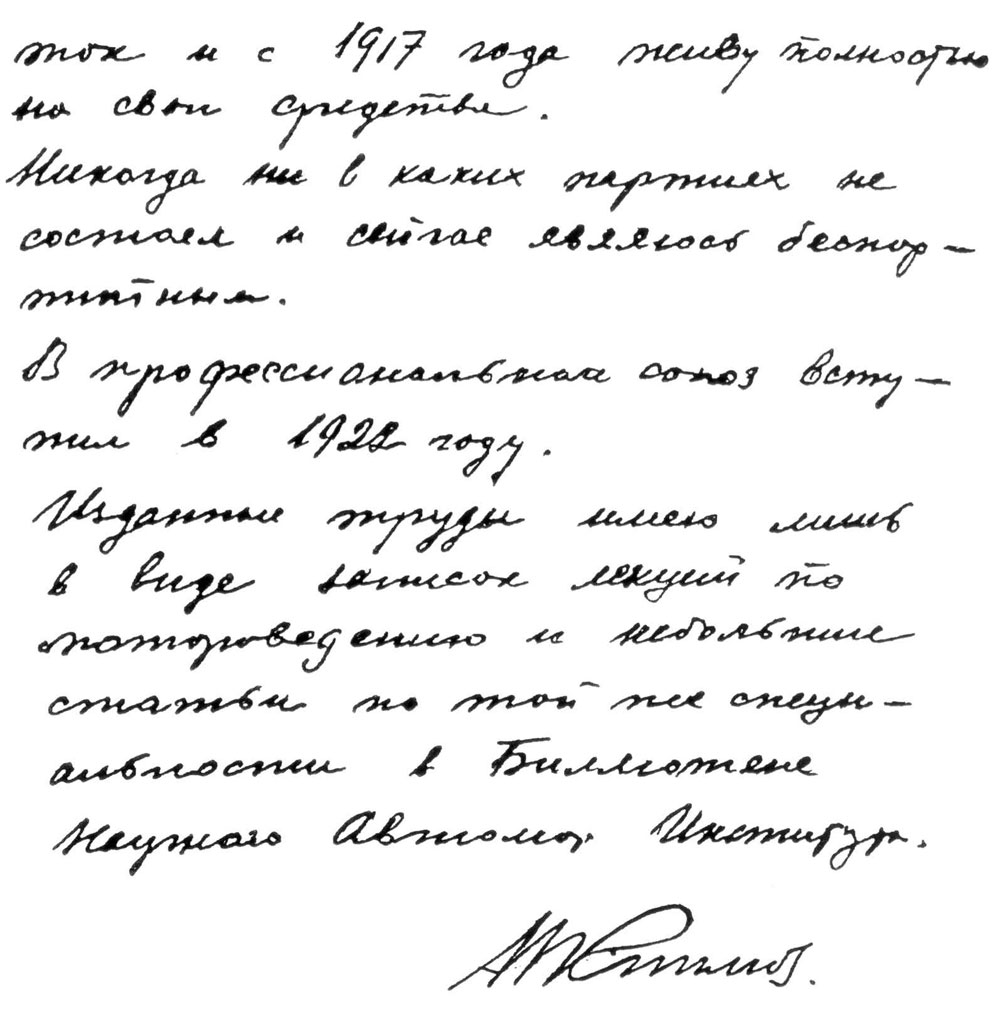 ток и с 1917 года живу полностью
на свои средства.
Никогда ни в каких партиях не
состоял и сейчас являюсь беспар-
тийным.
В профессиональный союз всту-
пил в 1922 году.
Изданные труды имею лишь
в виде записок лекций по
мотороведению и небольшие
статьи по той же специ-
альности в Бюллетене
Научного Автомот. Института.